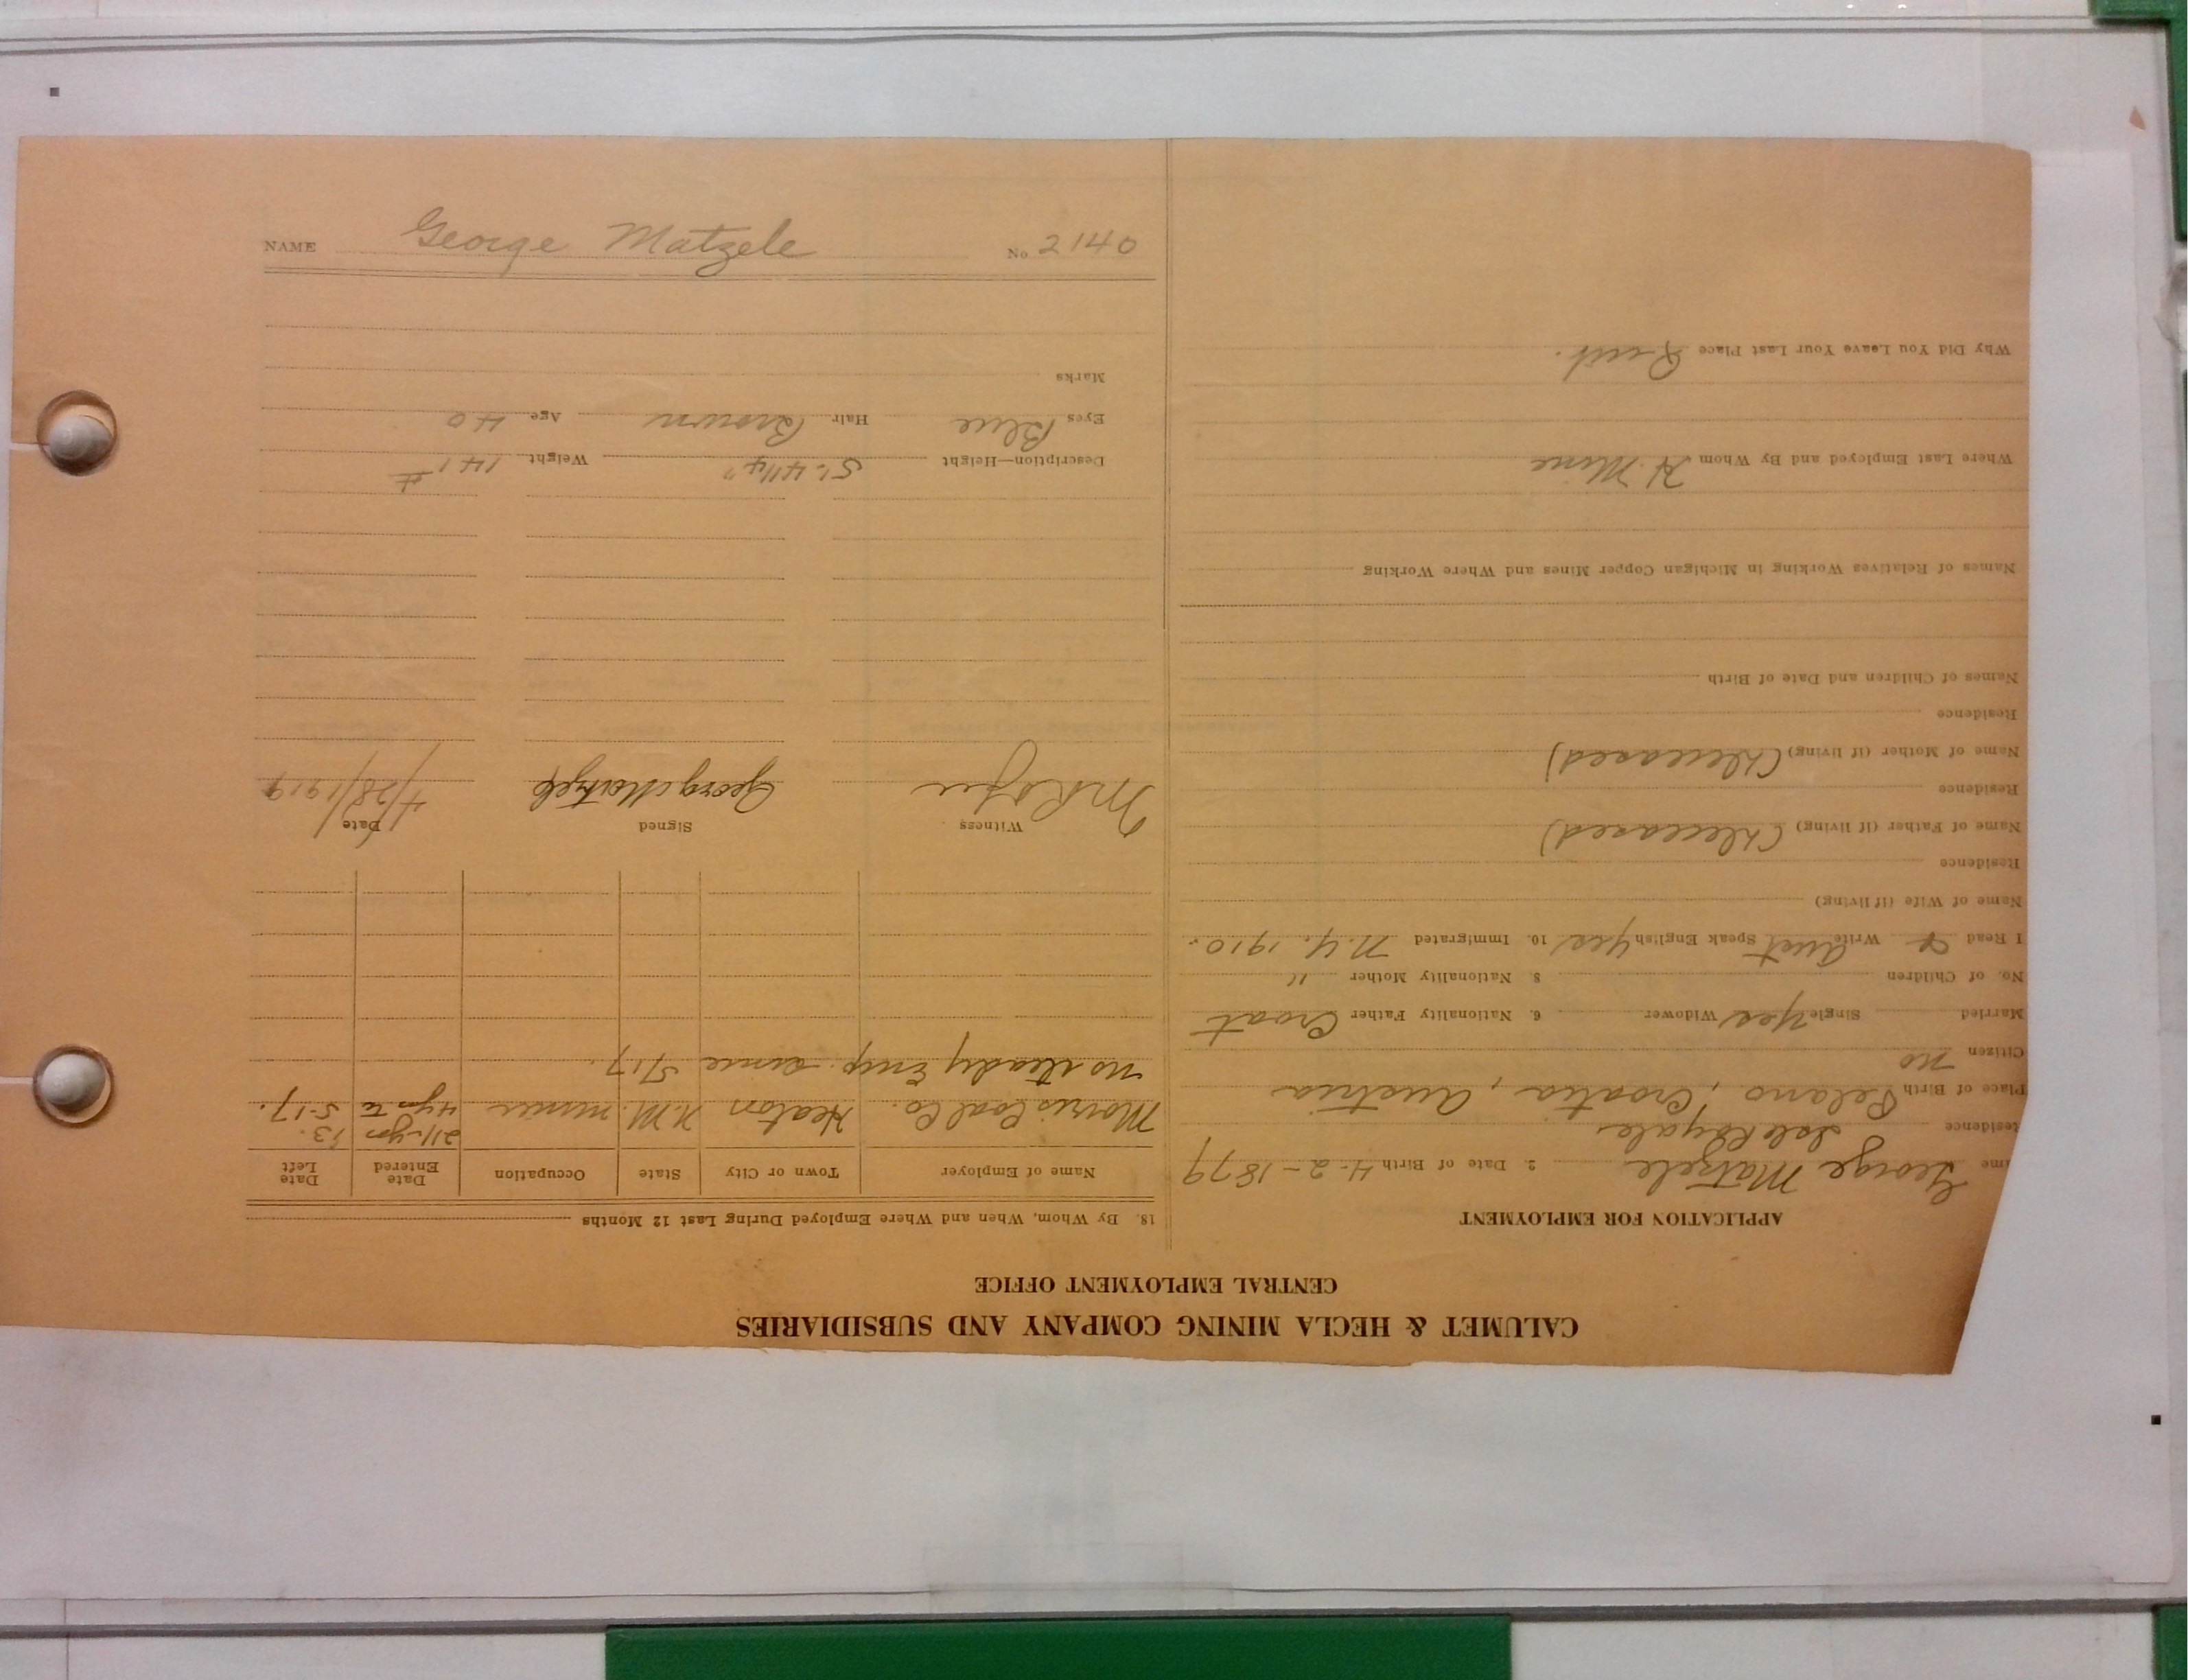 CALUMET & HECLA MINING COMPANY AND SUBSIDIARIES
CENTRAL EMPLOYMENT OFFICE
APPLICATION FOR EMPLOYMENT
ame George Matzele 2. Date of Birth 4-2-1879
Residence Isle Royale
Place of Birth Belano, Croatia, Austria
Citizen no
Married Single Yes Widower 6. Nationality Father Croat
No. of Children 8 Nationality Mother "
I Read & Write Aust Speak English Yes 10. Immigrated N.Y. 1910.
Name of Wife (if living)
Residence
Name of Father (if living) (Deceased)
Residence
Name of Mother (if living) (Deceased)
Residence
Names of Children and Date of Birth
Names of Relatives Working in Michigan Copper Mines and Where Working
Where Last Employed and By Whom H. Mine
Why Did You Leave Your Last Place Quit.
18. By Whom, When and Where Employed During Last 12 Months
Name of Employer Town or City State Occupation Date Entered Date Left
Morris Coal Co. Heaton N.M. miner 4 yrs to 5-17.
no steady Emp. since 5/17.
Witness Signed Date
George Matzele 4/28/1919
Description—Height 5'. 4 1/4" Weight 141 #
Eyes Blue Hair Brown Age 40
Marks
NAME George Matzele No 2140